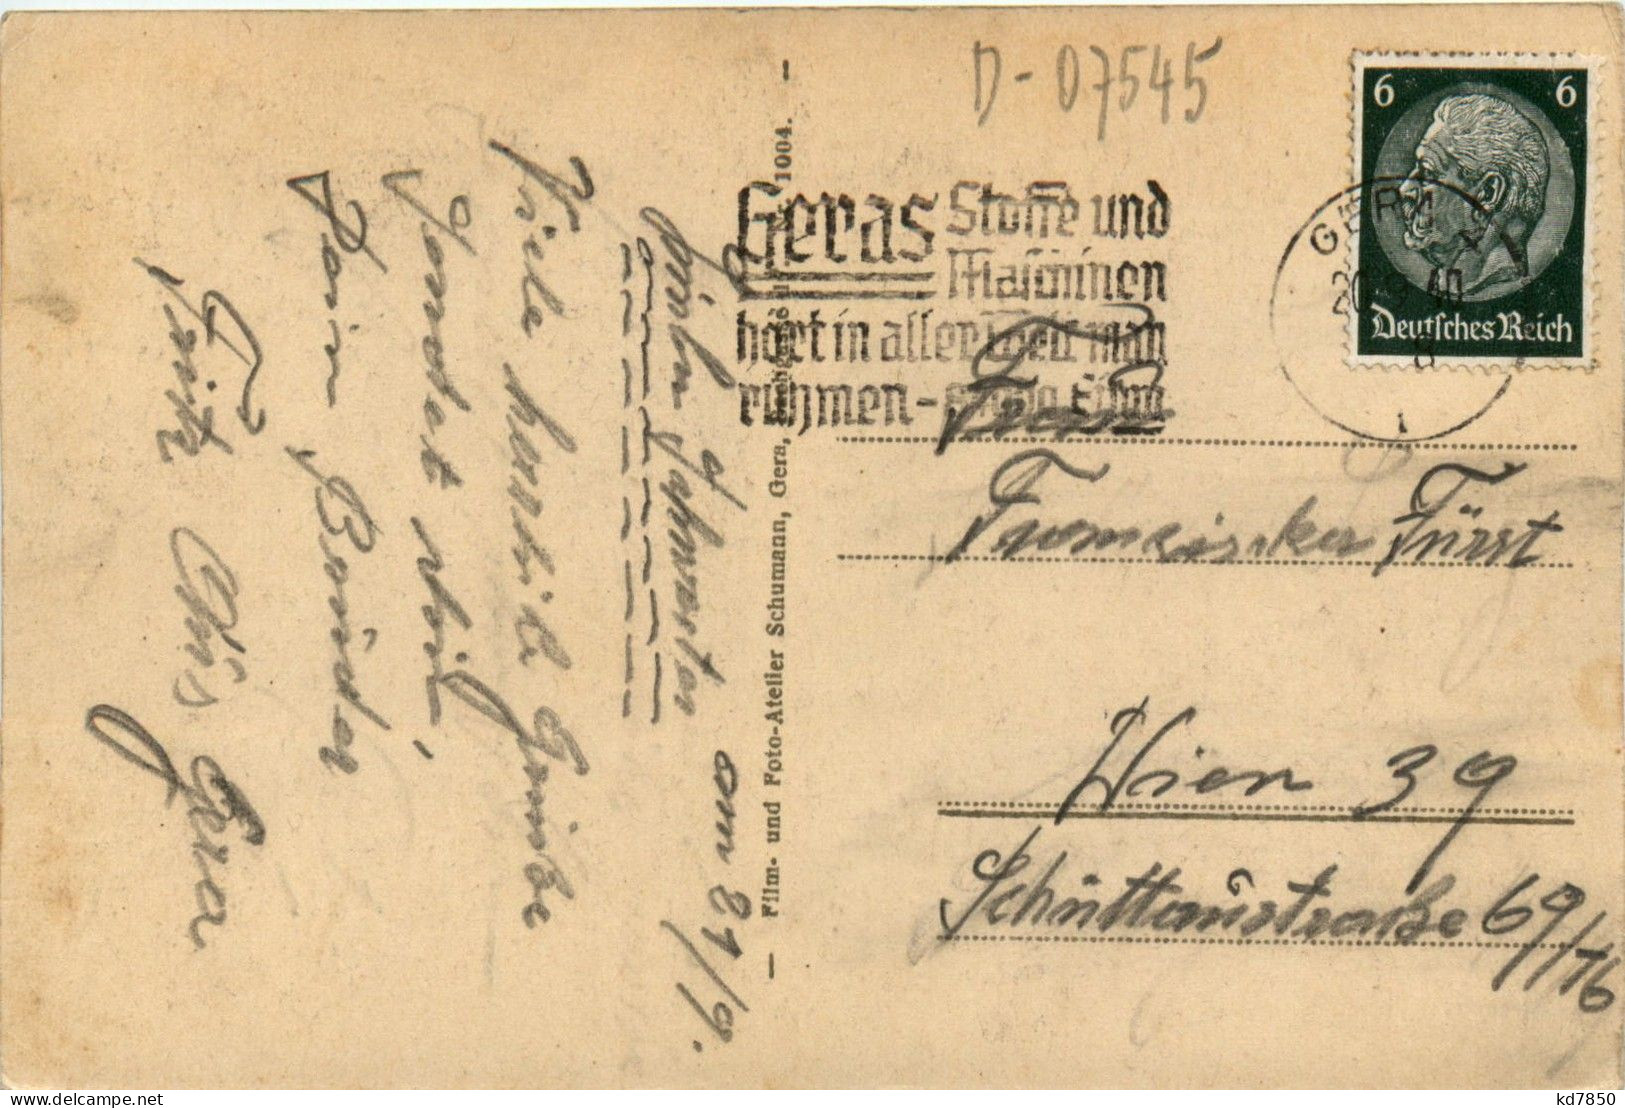 D-07545
6 6
Deutsches Reich
GERA
20.9.40
8
1
Geras Stoffe und
Maschinen
hört in aller Welt man
rühmen -
Frau
Franziska Fürst
Wien 39
Schüttaustraße 69/16
— Film- und Foto-Atelier Schumann, Gera, 1004. —
Liebe Schwester am 21/9.
Viele herzlich Grüße
sendet
Dein Bruder
Fritz aus Gera
kd7850